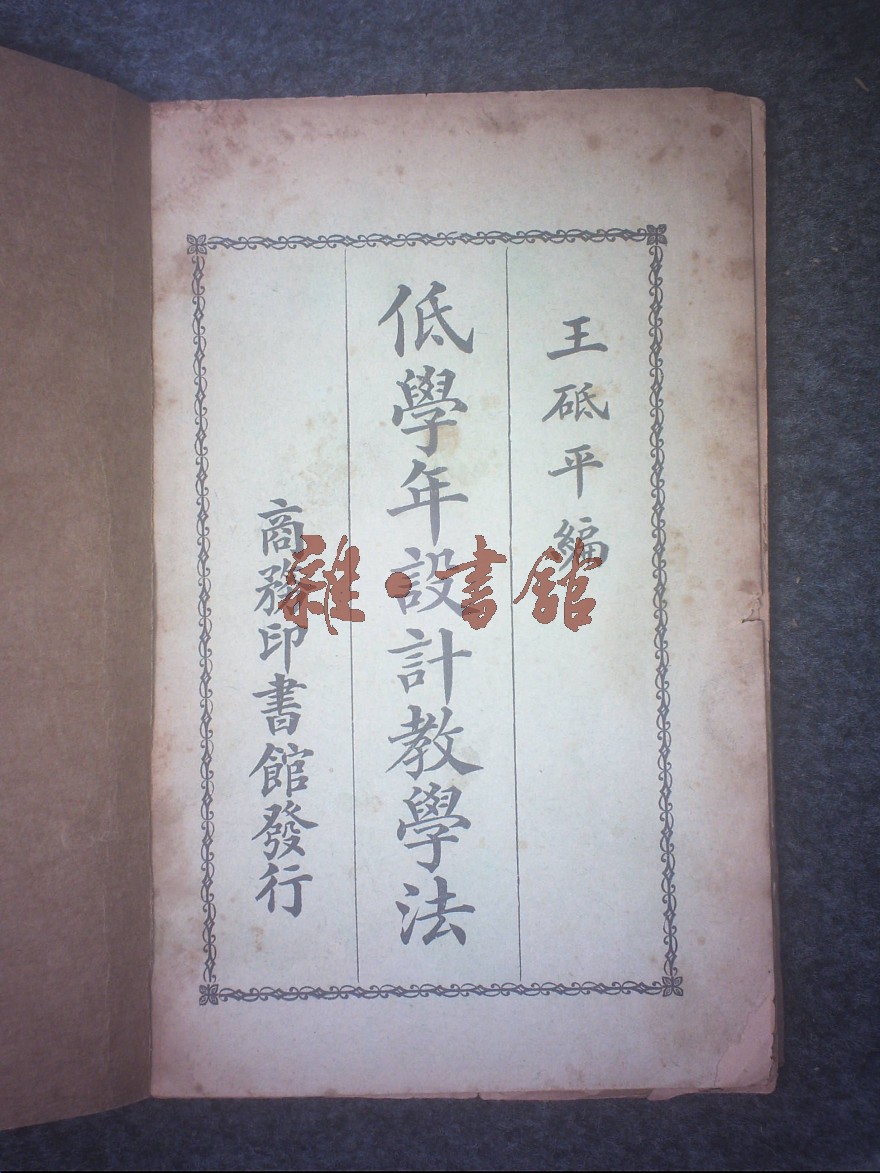 王砥平編
低學年設計教學法
商務印書館發行
雜·書館